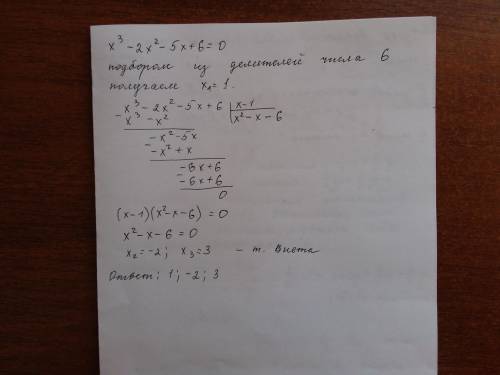 x³ - 2x² - 5x + 6 = 0
подбором из делителей числа 6
получаем x₁ = 1.
- x³ - 2x² - 5x + 6 | x - 1
x³ - x² | x² - x - 6
- - x² - 5x
- x² + x
- - 6x + 6
- 6x + 6
0
(x - 1)(x² - x - 6) = 0
x² - x - 6 = 0
x₂ = -2; x₃ = 3 - т. Виета
Ответ: 1; -2; 3